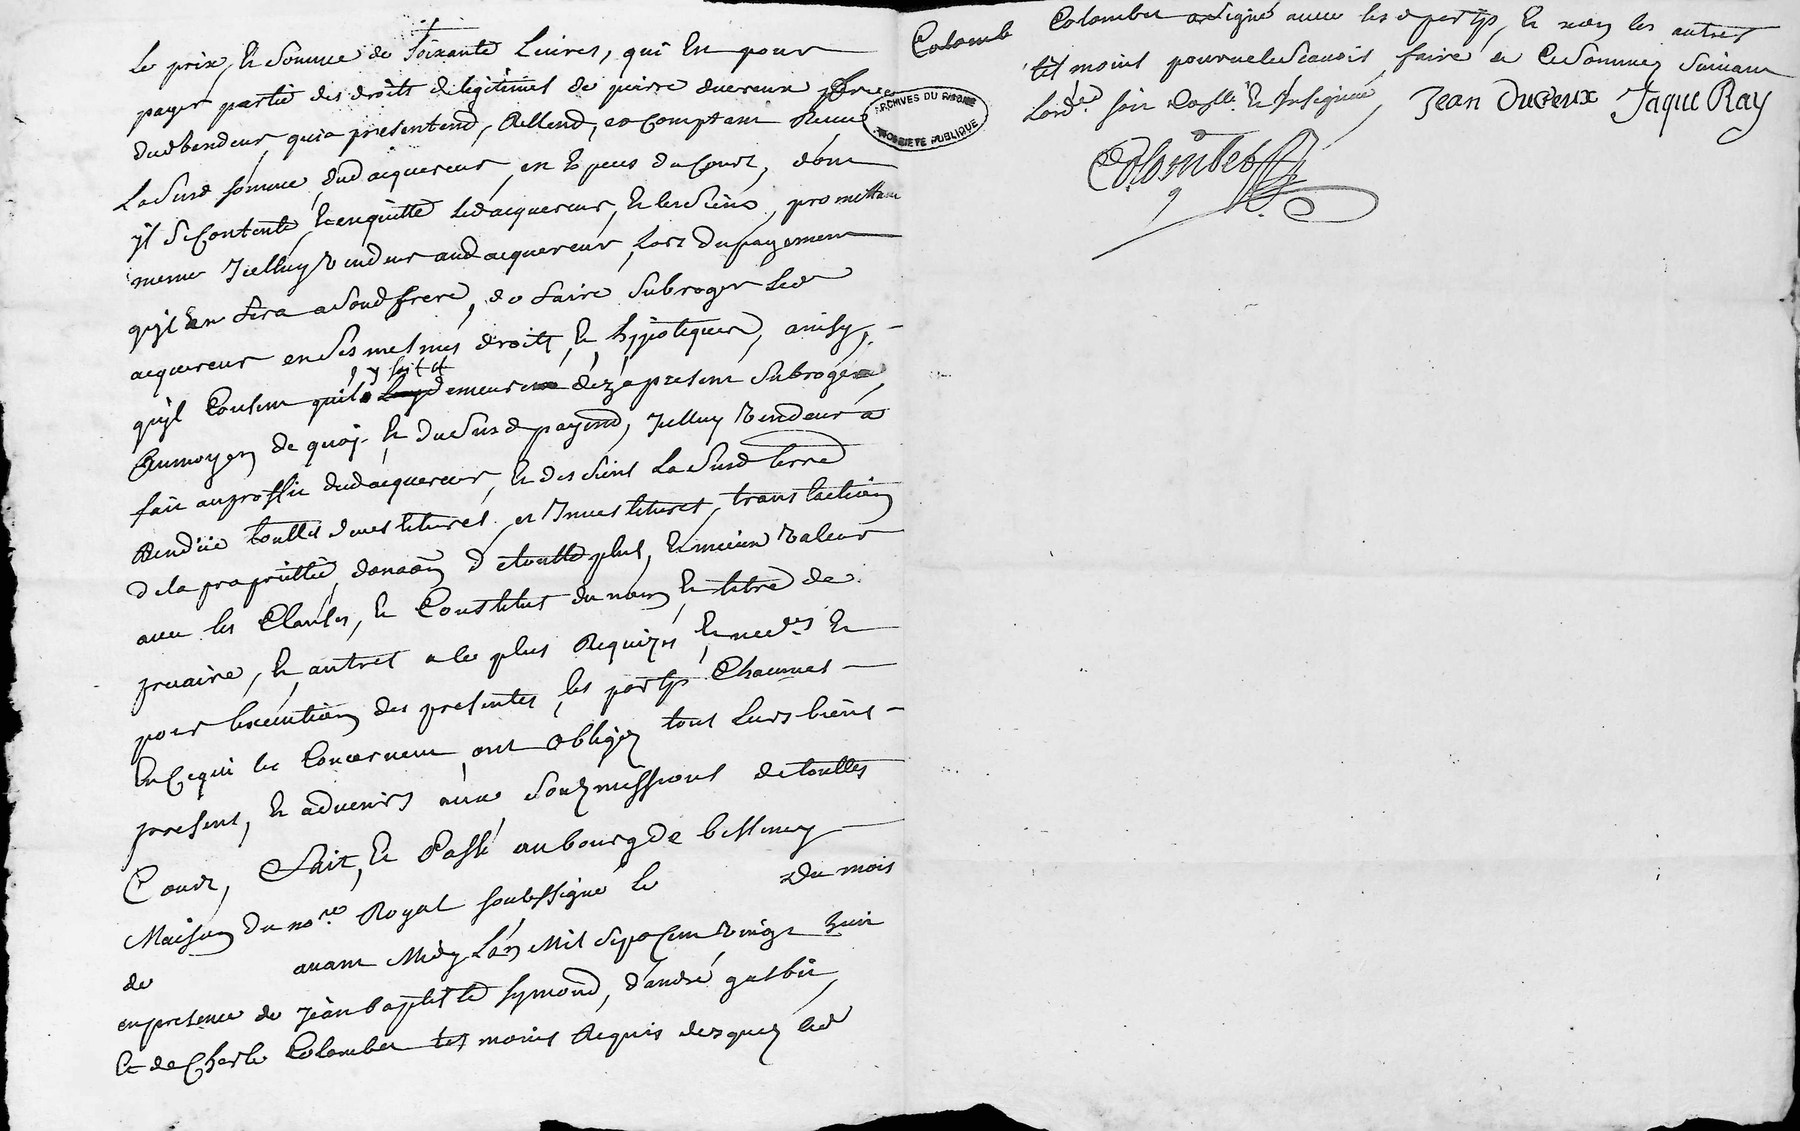 Le prix, et somme de soixante Livres, qui est pour
payer partie des droits de legitimes de pierre ducreux frere
dud vendeur, quia presentend, et comptant Receu
La Susd somme dud acquereur, en Espece du Court, dont
yl se Contente, et enquitte led acquereur, et les siens, promettant
meme Icelluy vendeur aud acquereur, Lors du payement
qu'jl En fera a sond frere, de faire Subroger led
acquereur en ses mesmes droits, et hypoteques, ainsy,
qu'jl Consent quil y soit et demeure déz a present Subrogé
Aumoyen de quoy. et du Susd payemd, Icelluy vendeur à
fait au proffit dud acquereur, et des siens La Susd terre
Vendüe touttes devestitures, et Investitures, translation
dela proprietté, donaon d etoutte plus, et mieux valeur
avec les Clauses, et Constitut du nom, et titre de
precaire, et autres a le plus Requizes, et neces et
pour lexecution des presentes, les parties Chacunes
En Cequi les Concernent, ont obligez tout Leurs biens
present, et advenirs avec Soubzmissions detouttes
Cours, Fait, et Passé aubourg de bessenay
Maison du nore Royal soubssigné le du mois
de avant Midy L'an Mil Sept Cent vingt huit
en presence de jean baptiste symond, d'andré gubin,
Et de Charle Colombet tesmoins Requis desquez led
Colomb Colombet a Signé avec les parties, et non les autres
tesmoins pour ne le Scavoir faire de Ce Sommez Suivant
Lordce soit Collé. et Insignué, Jean Ducreux Jaque Ray
Colombet
ARCHIVES DU RHONE
PROPRIETE PUBLIQUE